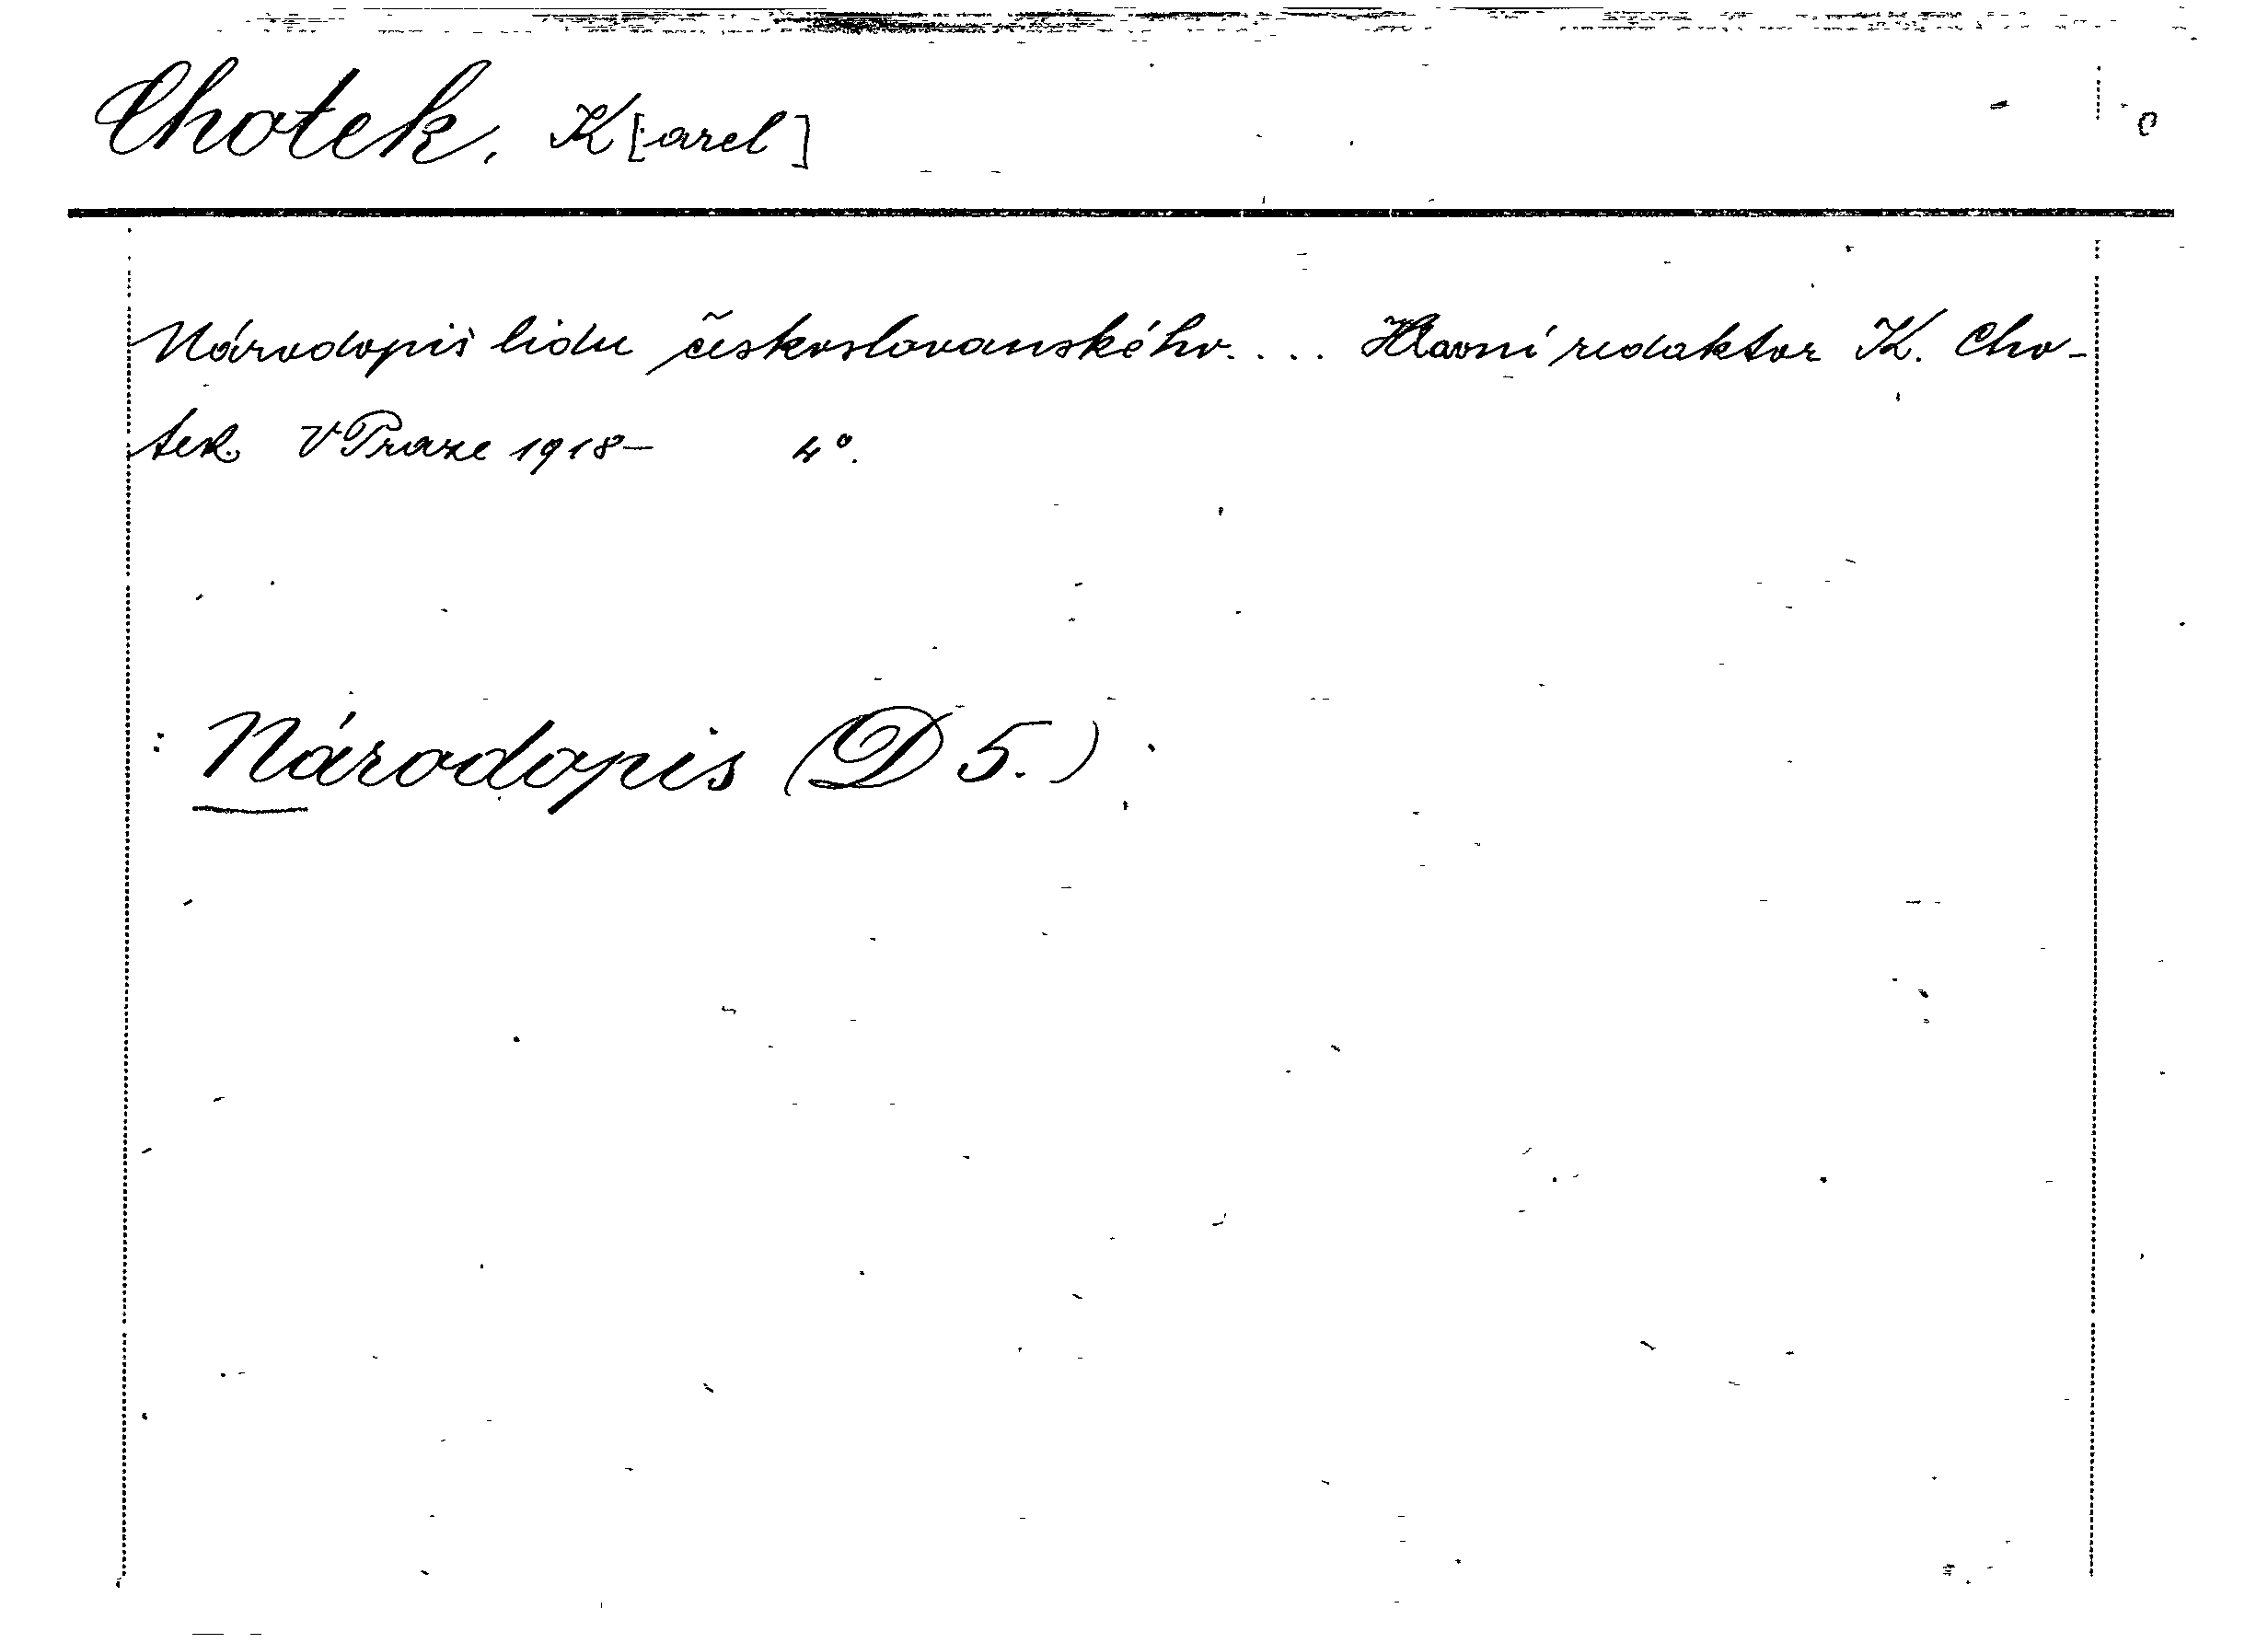 Chotek, K[arel]
Národopis lidu českoslovanského.... Hlavní redaktor K. Cho-
tek. V Praze 1918- 4°.
: Národopis (D 5.)